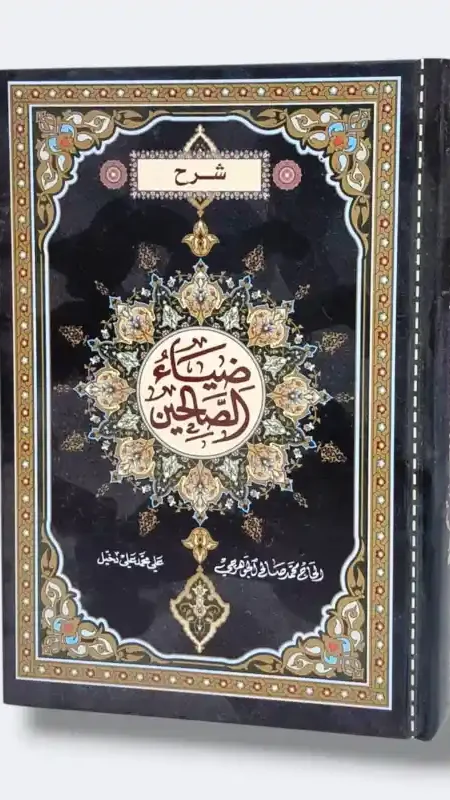 شرح
ضِيَاءُ
الصَّالِحِين
الحاج محمد صالح الجوهرجي
علي محمد علي دخيل